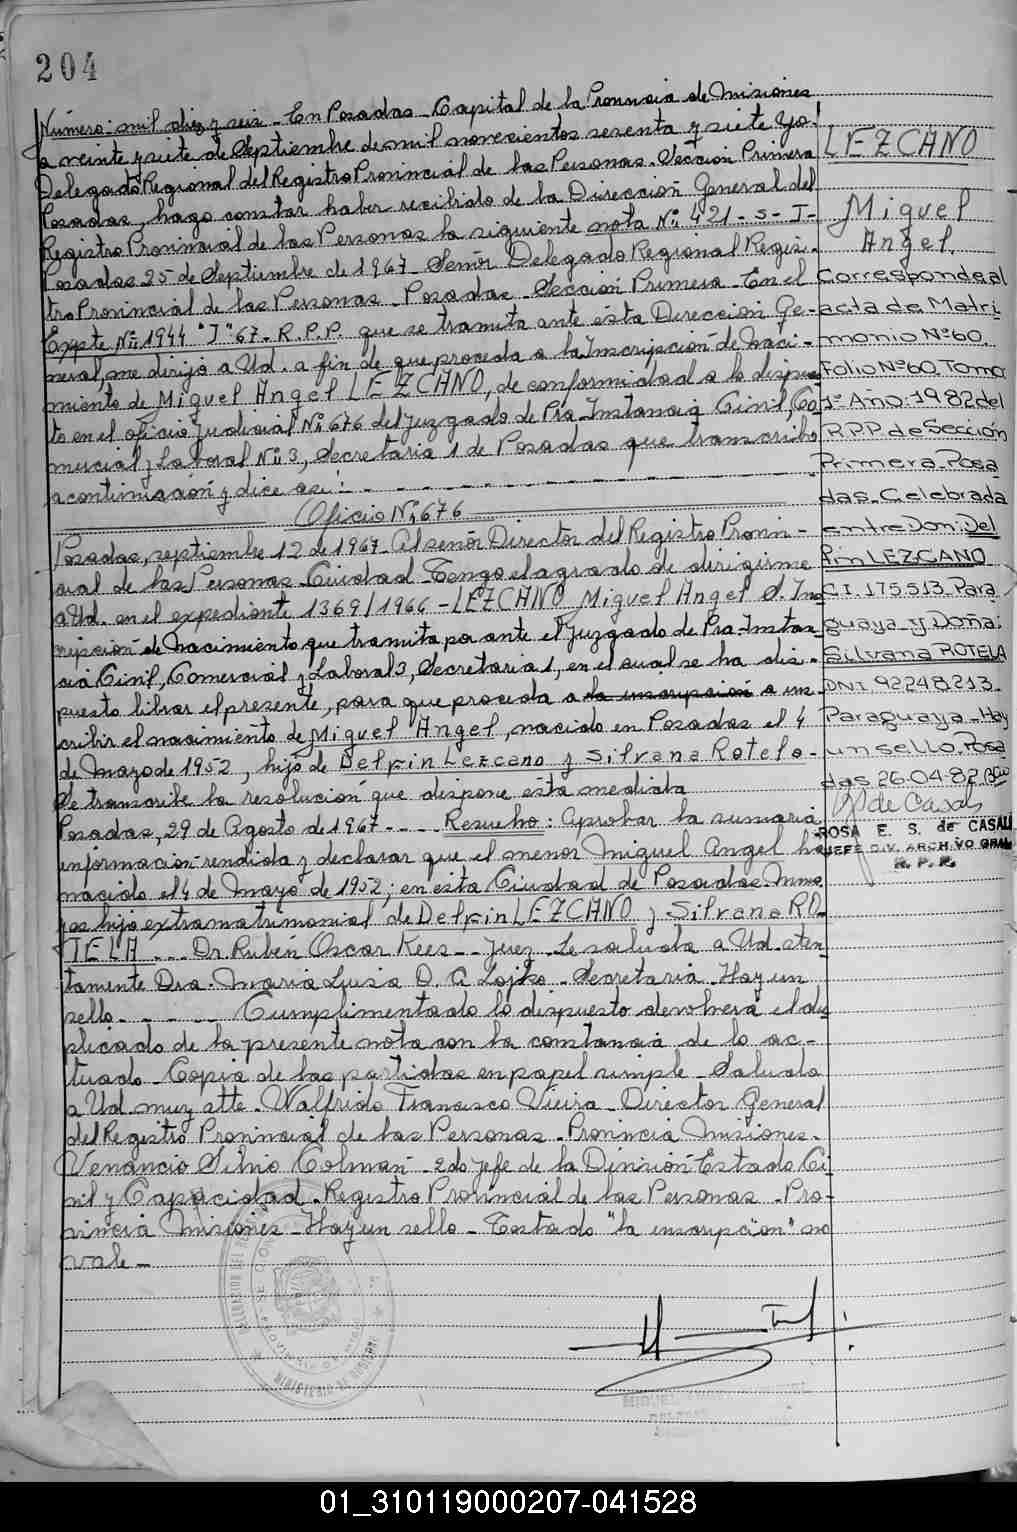 204
Número: mil diez y seis - En Posadas - Capital de la Provincia de Misiones
a veinte y siete de Septiembre de mil novecientos sesenta y siete Yo:
Delegado Regional del Registro Provincial de las Personas - Sección Primera
Posadas, hago constar haber recibido de la Dirección General del
Registro Provincial de las Personas la siguiente nota Nº 421-S-I-
Posadas 25 de Septiembre de 1967 - Señor Delegado Regional Regis-
tro Provincial de las Personas - Posadas - Sección Primera - En el
Expte Nº 1944 "I" 67 - R.P.P. que se tramita ante esta Dirección Ge-
neral, me dirijo a Ud. a fin de que proceda a la Inscripción de Naci-
miento de Miguel Angel LEZCANO, de conformidad a lo dispues
to en el oficio Judicial Nº 676 del Juzgado de Pra Instancia Civil, Co
mercial y Laboral Nº 3, Secretaria 1 de Posadas que transcribo
a continuación y dice así:
Oficio Nº 676
Posadas, septiembre 12 de 1967 - Al señor Director del Registro Provin-
cial de las Personas - Ciudad - Tengo el agrado de dirigirme
a Ud. en el expediente 1369/1966 - LEZCANO Miguel Angel S. Ins
cripción de nacimiento que tramita por ante el Juzgado de Pra Instan
cia Civil, Comercial y Laboral 3, Secretaria 1, en el cual se ha dis-
puesto librar el presente, para que proceda a la inscripción a ins
cribir el nacimiento de Miguel Angel, nacido en Posadas el 4
de Mayo de 1952, hijo de Delfin Lezcano y Silvana Rotela -
Se transcribe la resolución que dispone esta medida
Posadas, 29 de Agosto de 1967 - - - - Resuelvo: Aprobar la sumaria
información rendida y declarar que el menor Miguel Angel ha
nacido el 4 de Mayo de 1952; en esta Ciudad de Posadas, Misio
nes hijo extramatrimonial de Delfin LEZCANO y Silvana RO-
TELA - - - Dr Rubén Oscar Kees - - Juez - Le saluda a Ud. aten
tamente Dra. Maria Luisa D. C. Lojko - Secretaria - Hay un
sello - - - - - Cumplimentado lo dispuesto devolverá el du
plicado de la presente nota con la constancia de lo ac-
tuado - Copia de las partidas en papel simple - Saluda
a Ud muy atte. Walfrido Francisco Vieira - Director General
del Registro Provincial de las Personas - Provincia Misiones -
Venancio Silvio Colman - 2do Jefe de la División Estado Ci
vil y Capacidad - Registro Provincial de las Personas - Pro-
vincia Misiones - Hay un sello - Testado "la inscripcion" no
vale -
LEZCANO
Miguel
Angel.
Corresponde al
acta de Matri
monio Nº 60.
Folio Nº 60. Tomo
1º Año: 1982 del
R.P.P. de Sección
Primera. Posa
das. Celebrada
entre Don: Del
fin LEZCANO
C.I. 175513. Para
guaya y Doña:
Silvana ROTELA
DNI. 92248213.
Paraguaya - Hay
un sello. Posa
das 26-04-82.
de Casals
ROSA E. S. de CASALI
JEFE DIV. ARCHIVO GRAL
R. P. P.
MINISTERIO DE GOBIERNO
01_310119000207-041528